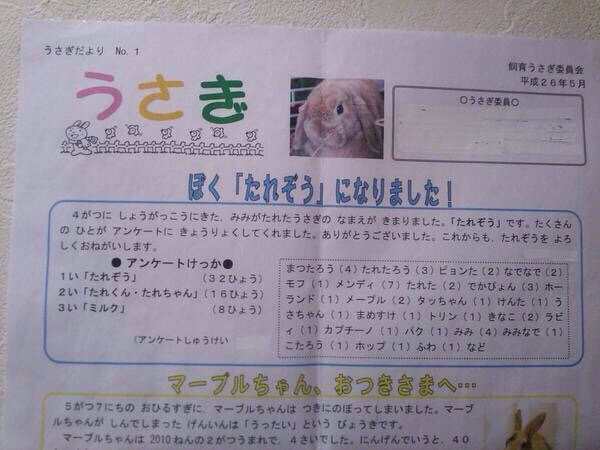 うさぎだより No.1
飼育うさぎ委員会
平成26年5月
うさぎ
○うさぎ委員○
ぼく「たれぞう」になりました！
4がつに しょうがっこうにきた、みみがたれたうさぎの なまえが きまりました。「たれぞう」です。たくさん
の ひとが アンケートに きょうりょくしてくれました。ありがとうございました。これからも、たれぞうを よろ
しくおねがいします。
● アンケートけっか●
1い「たれぞう」 （32ひょう）
2い「たれくん・たれちゃん」（16ひょう）
3い「ミルク」 （8ひょう）
（アンケートしゅうけい
まつたろう（4）たれたろう（3）ピョンた（2）なでなで（2）
モフ（1）メンディ（7）たれた（2）でかぴょん（3）ホー
ランド（1）メープル（2）タッちゃん（1）けんた（1）う
さちゃん（1）まめすけ（1）トリン（1）きなこ（2）ラビ
ィ（1）カプチーノ（1）パク（1）みみ（4）みみなで（1）
こたろう（1）ホップ（1）ふわ（1）など
マーブルちゃん、おつきさまへ…
5がつ7にちの おひるすぎに、マーブルちゃんは つきにのぼってしまいました。マーブ
ルちゃんが しんでしまった げんいんは「うったい」という びょうきです。
マーブルちゃんは 2010ねんの2がつうまれで、4さいでした。にんげんでいうと、40